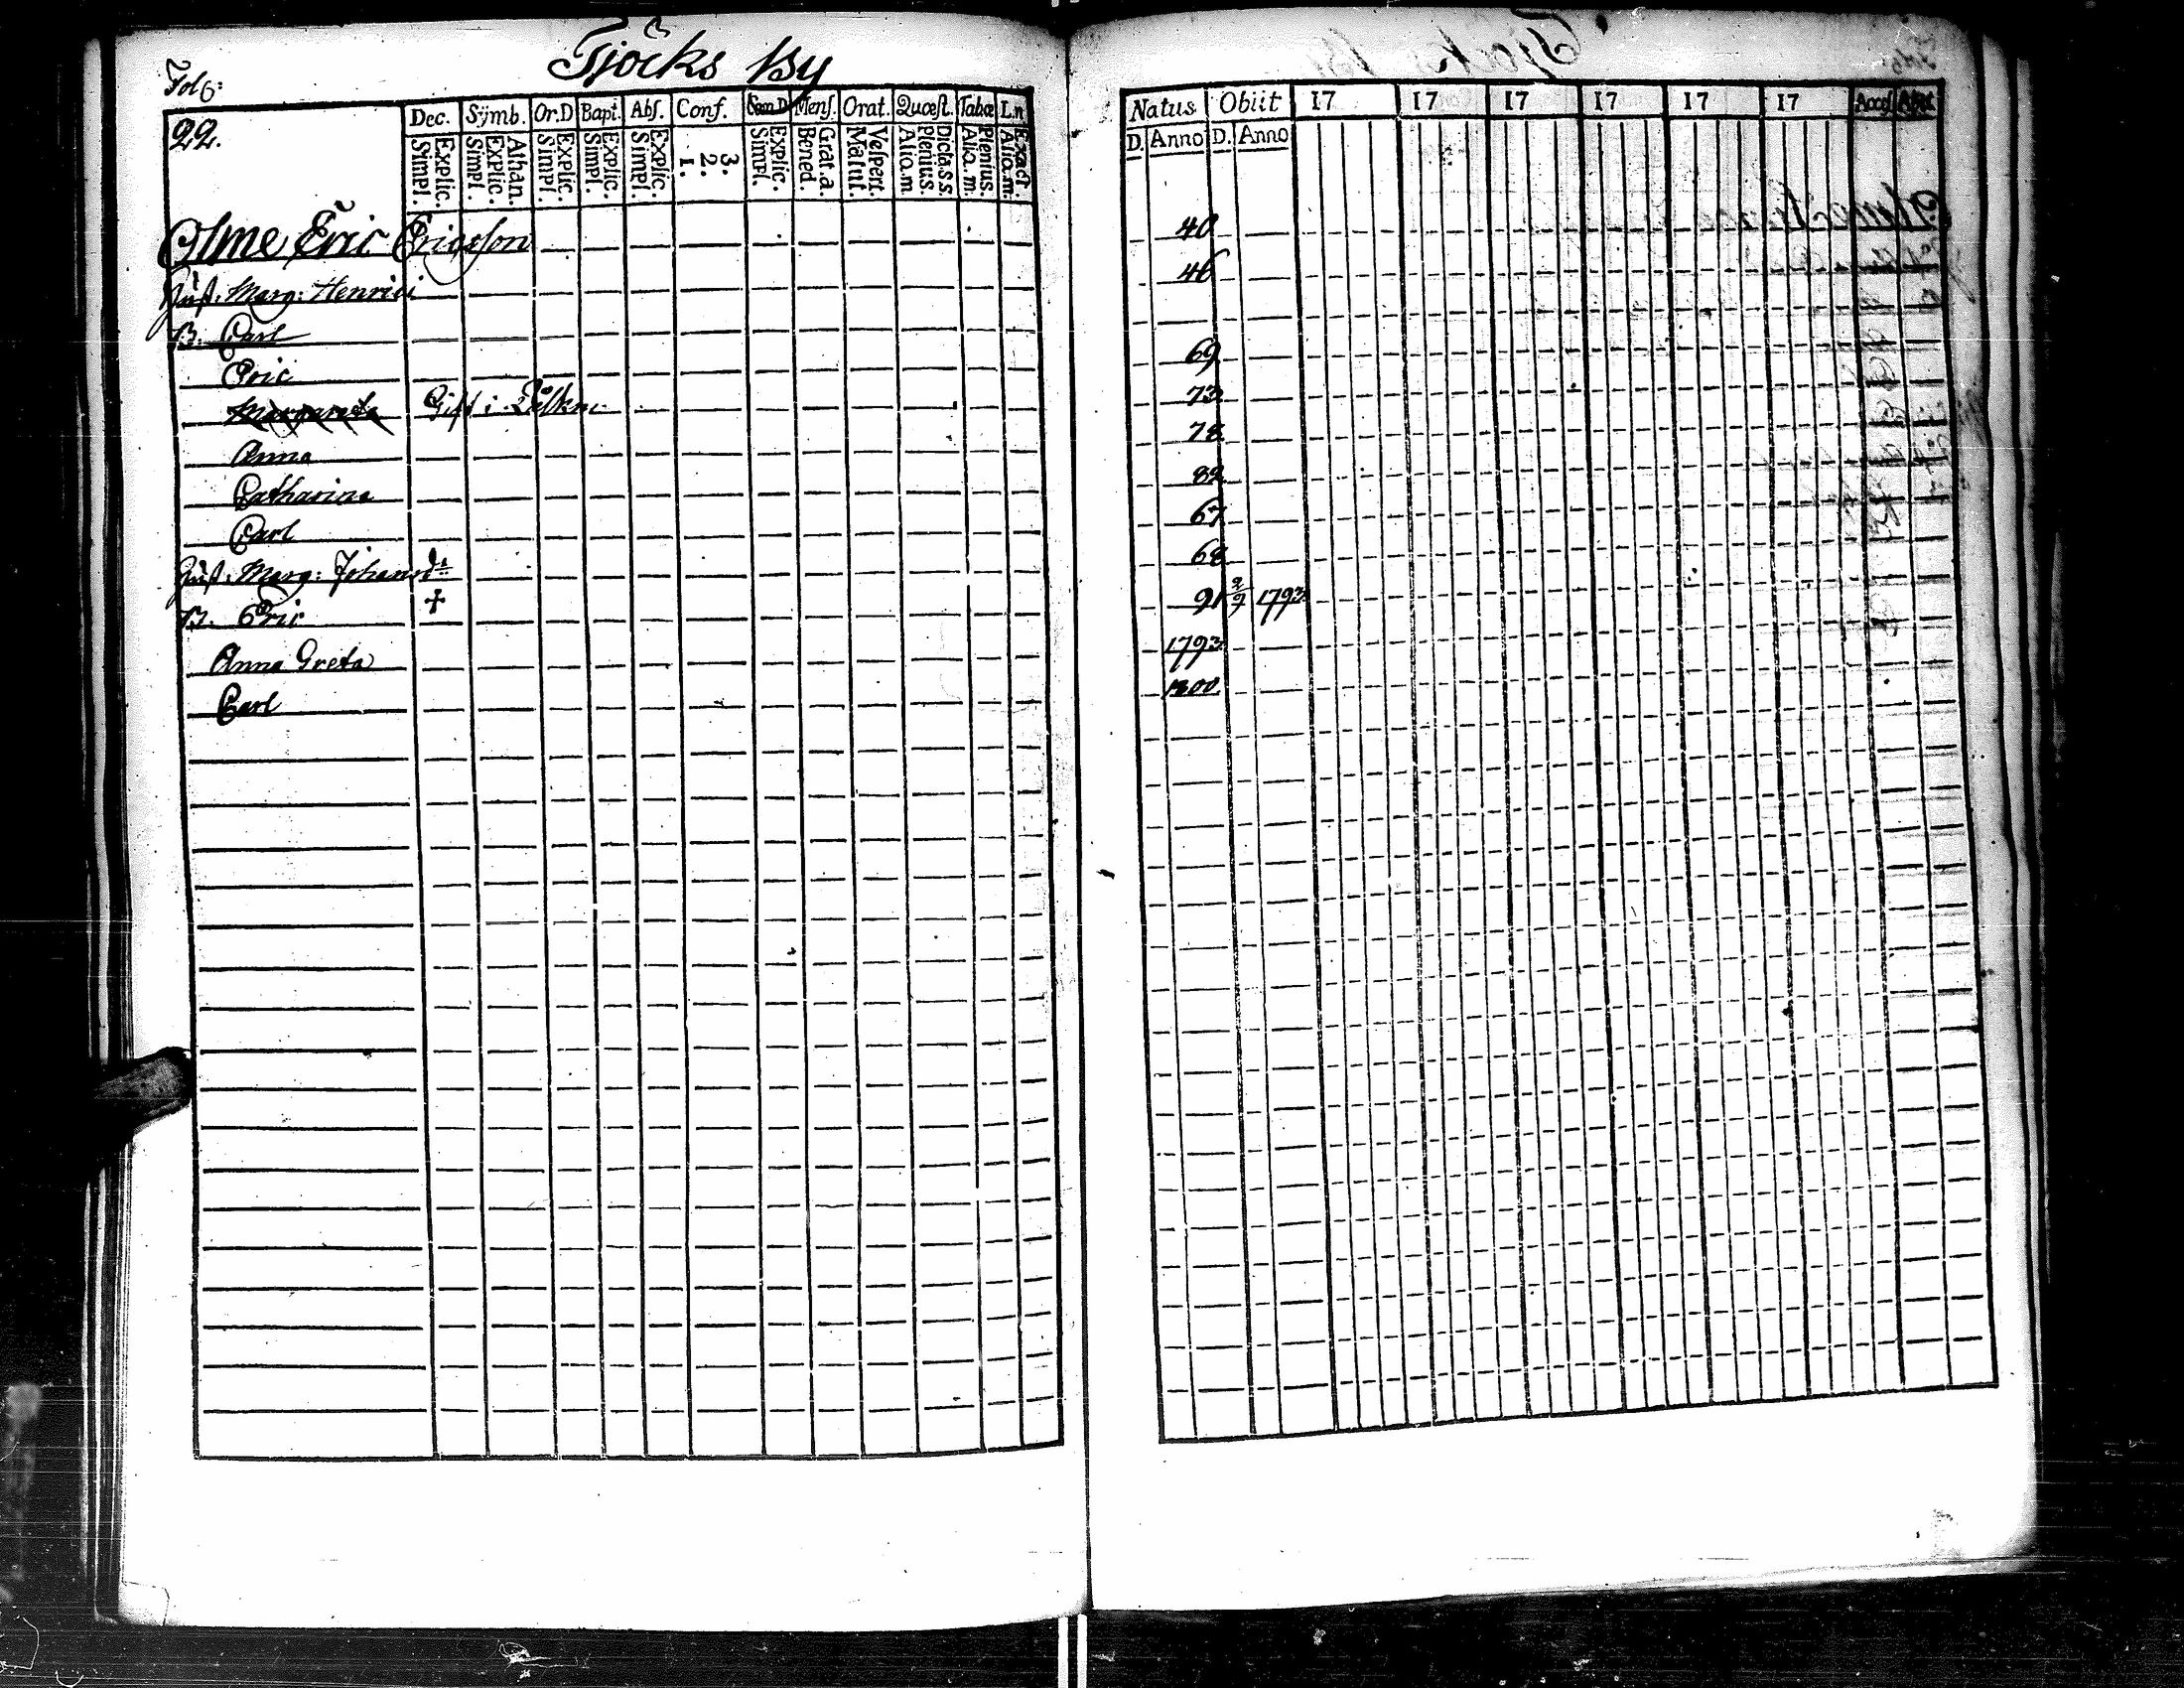 Tjöcks By
Fol 6:
22.
Dec. Sÿmb. Or.D Bapt. Abs. Conf. Mens. Orat. Quæst. Tabæ L.n.
Explic. Simpl. Athan. Explic. Simpl. Explic. Simpl. Explic. Simpl. Explic. Simpl. 3. 2. 1. Explic. Simpl. Grat.a. Bened. Vespert. Matut. Dicta.s.s. Plenius. Alio.m. Plenius. Alio.m. Exact. Alio.m.
Olme Eric Ericsson
Hust. Marg: Henrici
B. Carl
Eric
Margareta Gift i
Anna
Catharina
Carl
Hust. Marg: Johansdr
B. Eric +
Anna Greta
Carl
Natus Obiit 17 17 17 17 17 17 Access. Abiit
D. Anno D. Anno
40
46
69
73
78
82
67
68
91 2/9 1793
1793
1800